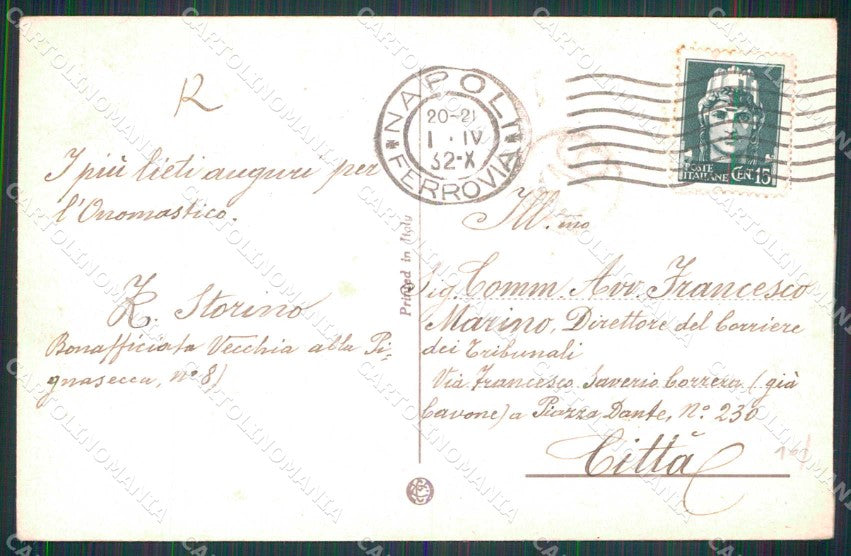 R
I più lieti auguri per
l'Onomastico.
Storino
Bonafficiata Vecchia alla Pi-
gnasecca, nº 8)
NAPOLI
20-21
1 · IV
32-X
FERROVIA
POSTE
ITALIANE CEN. 15
Printed in Italy
Ill.mo
Sig. Comm. Avv. Francesco
Marino, Direttore del Corriere
dei Tribunali
Via Francesco Saverio Correra (già
Cavone) a Piazza Dante, Nº 230
Città
CARTOLINOMANIA